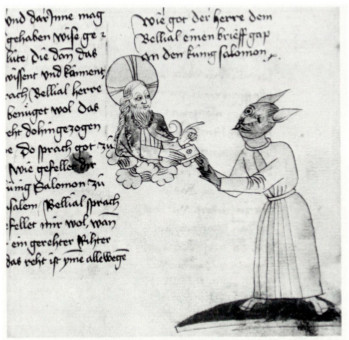 vnd darInne mag
gehaben wise ge=
lute die dan das
wissent vnd kument
Bellial herre
benüget wol das
reht dohin gezogen
Do sprach got zu
Wie gefellet dir
Salomon zu
salem Bellial sprach
fellet mir wol wan
ein gerehter Rihter
das reht ist yme allewege
Wie got der herre dem
Bellial einen brieff gap
An den küng salomon